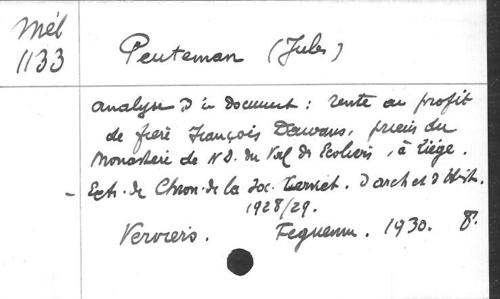 Mél
1133
Peuteman (Jules)
Analyse d'un document : rente au profit
de frère François Dawans, prieur du
Monastère de N.D. du Val des Ecoliers, à Liège.
- Extr. de Chron. de la Soc. Verviet. d'arch et d'Hist.
1928/29.
Verviers. 1930. 8°.